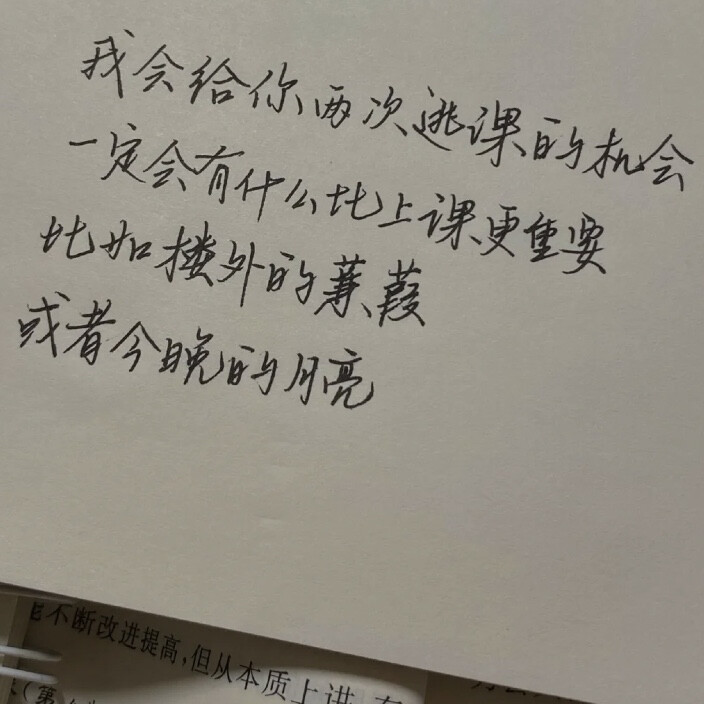 我会给你两次逃课的机会
一定会有什么比上课更重要
比如楼外的蒹葭
或者今晚的月亮
不断改进提高,但从本质上讲
(第